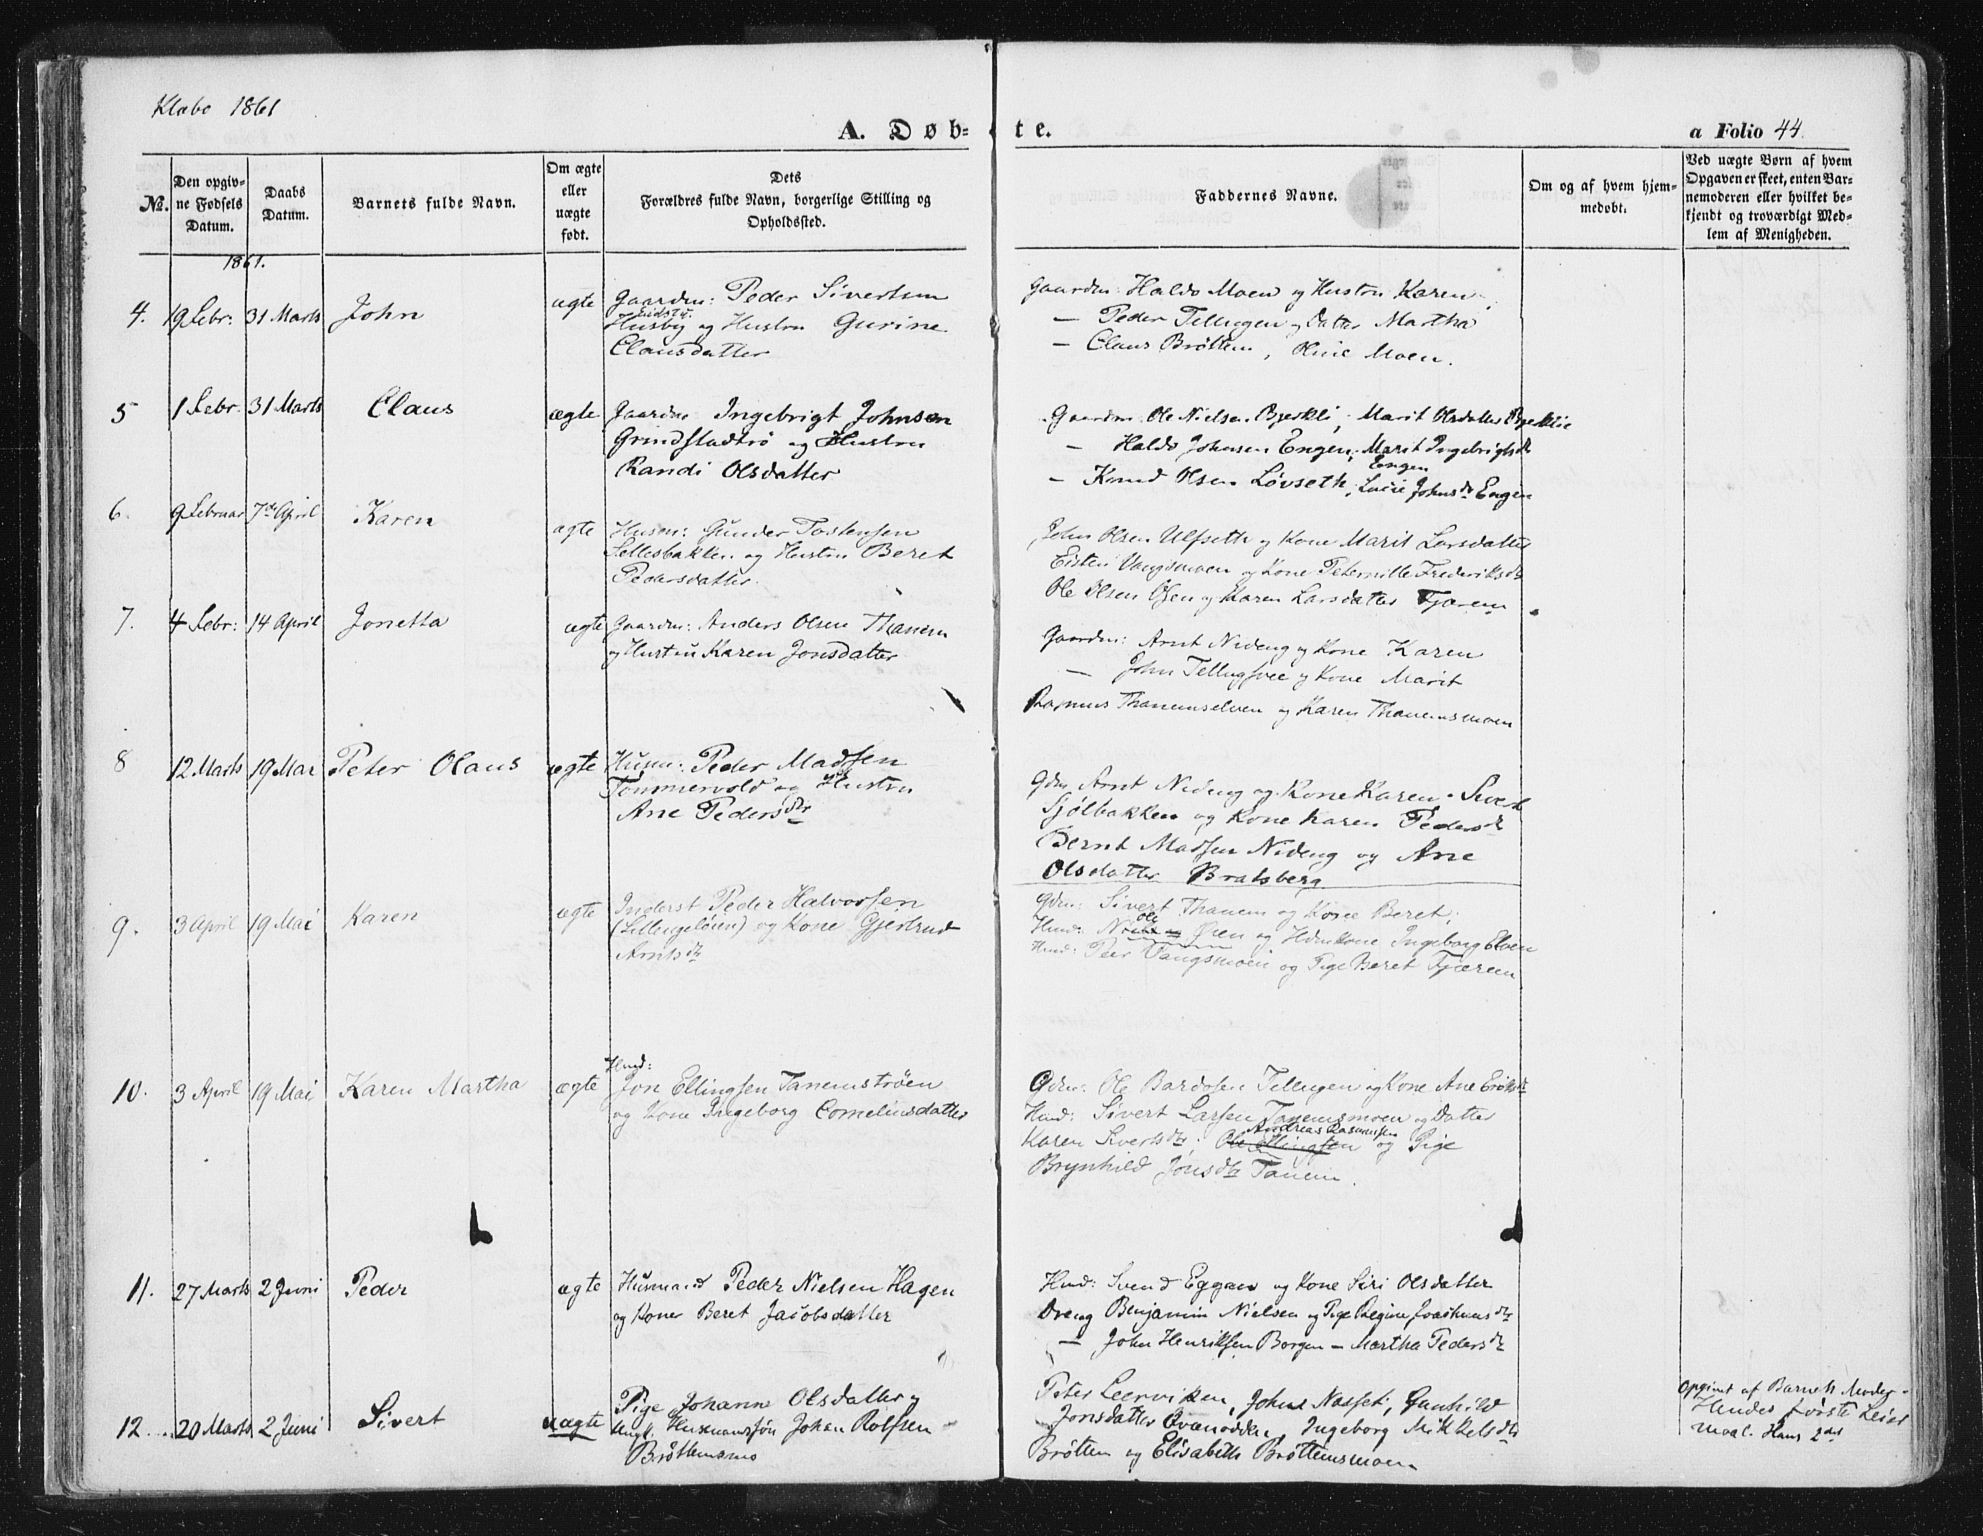 Klæbo 1861
A. Døb- te.
a Folio 44.
No.
Den opgiv-
ne Fødsels
Datum.
Daabs
Datum.
Barnets fulde Navn.
Om ægte
eller
uægte
født.
Dets
Forældres fulde Navn, borgerlige Stilling og
Opholdssted.
Faddernes Navne.
Om og af hvem hjem-
medøbt.
Ved uægte Børn af hvem
Opgaven er skeet, enten Bar-
nemoderen eller hvilket be-
kjendt og troværdigt Med-
lem af Menigheden.
1861.
4. 19 Febr: 31 Marts John ægte Gaardm: Peder Sivertsen
Husby og Hustru Gurine
Clausdatter
Gaardm: Haldo Moen og Hustru Karen
— Peder Tellugen og Datter Martha
— Claus Brøttem, Moen.
5 1 Febr. 31 Marts Claus ægte Gaardm Ingebrigt Johnsen
Grindstadtrø og Hustru
Randi Olsdatter
Gaardm Ole Nielsen Bjerkli, Marit Olsdatter Bjerklie
— Haldo Johnsen Engen, Marit Ingebrigtsdr
Engen
— Knud Olsen Løvseth, Johnsdr Engen
6. 9 Februar 7de April Karen ægte Husm: Gunder Tostensen
Sellesbakken og Hustru Beret
Pedersdatter.
John Olsen Ulfseth og Kone Marit Larsdatter
Eisten Vangsmoen og Kone Peternille Frederiksdr
Ole Olsen Osen og Karen Larsdatter Tjærem
7. 4 Febr: 14 April Jonetta ægte Gaardm: Anders Olsen Thanem
og Hustru Karen Jonsdatter
Gaardm: Arnt Nideng og Kone Karen
— John Tellugsvee og Kone Marit
Rasmus Thanemselven og Karen Thanemsmoen
8 12 Marts 19 Mai Peter Olaus ægte Husm: Peder Madsen
Tømmervold og Hustru
Ane Pedersdtr
Gdm Arnt Nideng og Kone Karen. Sivert
Sjølbakken og Kone Karen Pedersdr
Bernt Madsen Nideng og Ane
Olsdatter Bratsberg
9. 3 April 19 Mai Karen ægte Inderst Peder Halvorsen
(Sellugeløien) og Kone Gjertrud
Arntsdtr
Gdm: Sivert Thanem og Kone Beret;
Hmd: Ole Øien og Hdmkone Ingeborg Elven
Hmd: Peer Vangsmoen og Pige Beret Tjærem
10. 3 April 19 Mai Karen Martha ægte Hmd:
Jon Ellingsen Tanemstrøen
og Kone Ingeborg Corneliusdatter
Gdm: Ole Bardosen Tellugen og Kone Ane Eriksdtr
Hmd: Sivert Larsen Tanemsmoen og Datter
Karen Sivertsdtr; Andreas Rasmussen
Ole Ellingsen og Pige
Brynhild Jonsdtr Tanem.
11. 27 Marts 2 Juni Peder ægte Husmand Peder Nielsen Hagen
og Kone Beret Jacobsdatter
Hmd: Svend Eggan og Kone Siri Olsdatter
Dreng Benjamin Nielsen og Pige Regine Joachimsdtr
— John Henriksen Borgen — Martha Pedersdtr
12. 20 Marts 2 Juni Sivert uægte Pige Johanne Olsdatter og
Ungk. Husmandssøn Johan Rolfsen
Brøttemsmo
Peter Leerviken, Johns Nasset, Gunhild
Jonsdatter Qvanodden, Ingeborg Mikkelsdtr
Brøtten og Elisabeth Brøttemsmoen
Opgivet af Barnets Moder.
Hendes første Leier
moal. Hans 2det